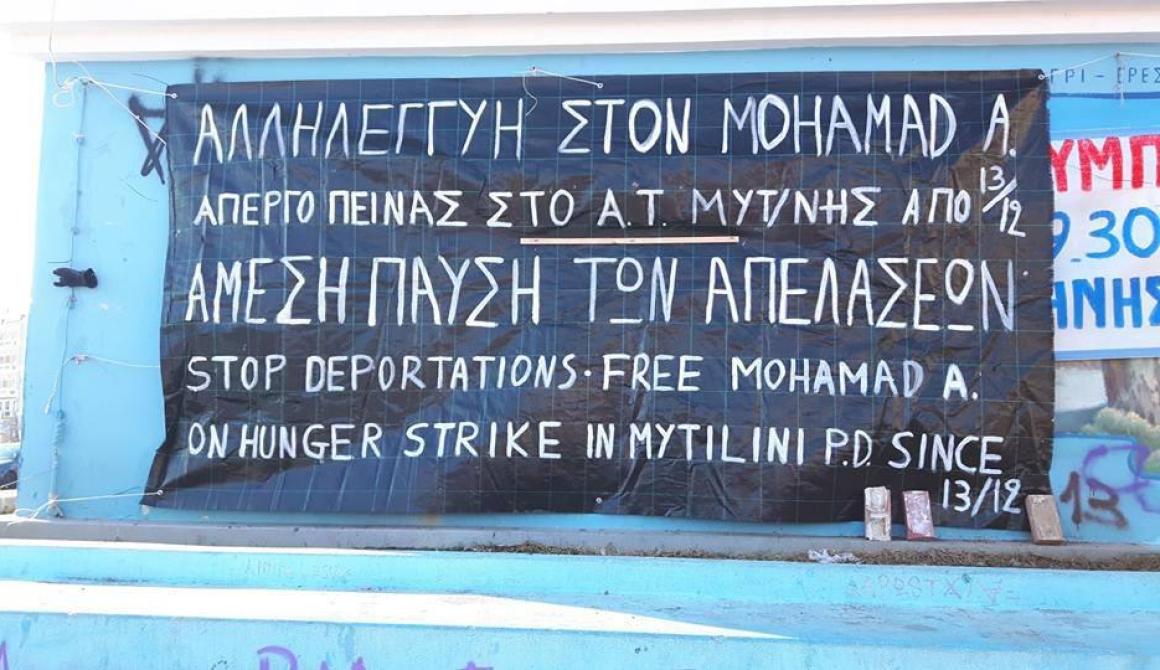 ΑΛΛΗΛΕΓΓΥΗ ΣΤΟΝ MOHAMAD A.
ΑΠΕΡΓΟ ΠΕΙΝΑΣ ΣΤΟ Α.Τ. ΜΥΤ/ΝΗΣ ΑΠΟ 13/12
ΑΜΕΣΗ ΠΑΥΣΗ ΤΩΝ ΑΠΕΛΑΣΕΩΝ
STOP DEPORTATIONS · FREE MOHAMAD A.
ON HUNGER STRIKE IN MYTILINI P.D. SINCE
13/12
ΓΡΙ - ΕΡΕΣ
ΥΜΠ
9_30
ΗΝΗΣ
13